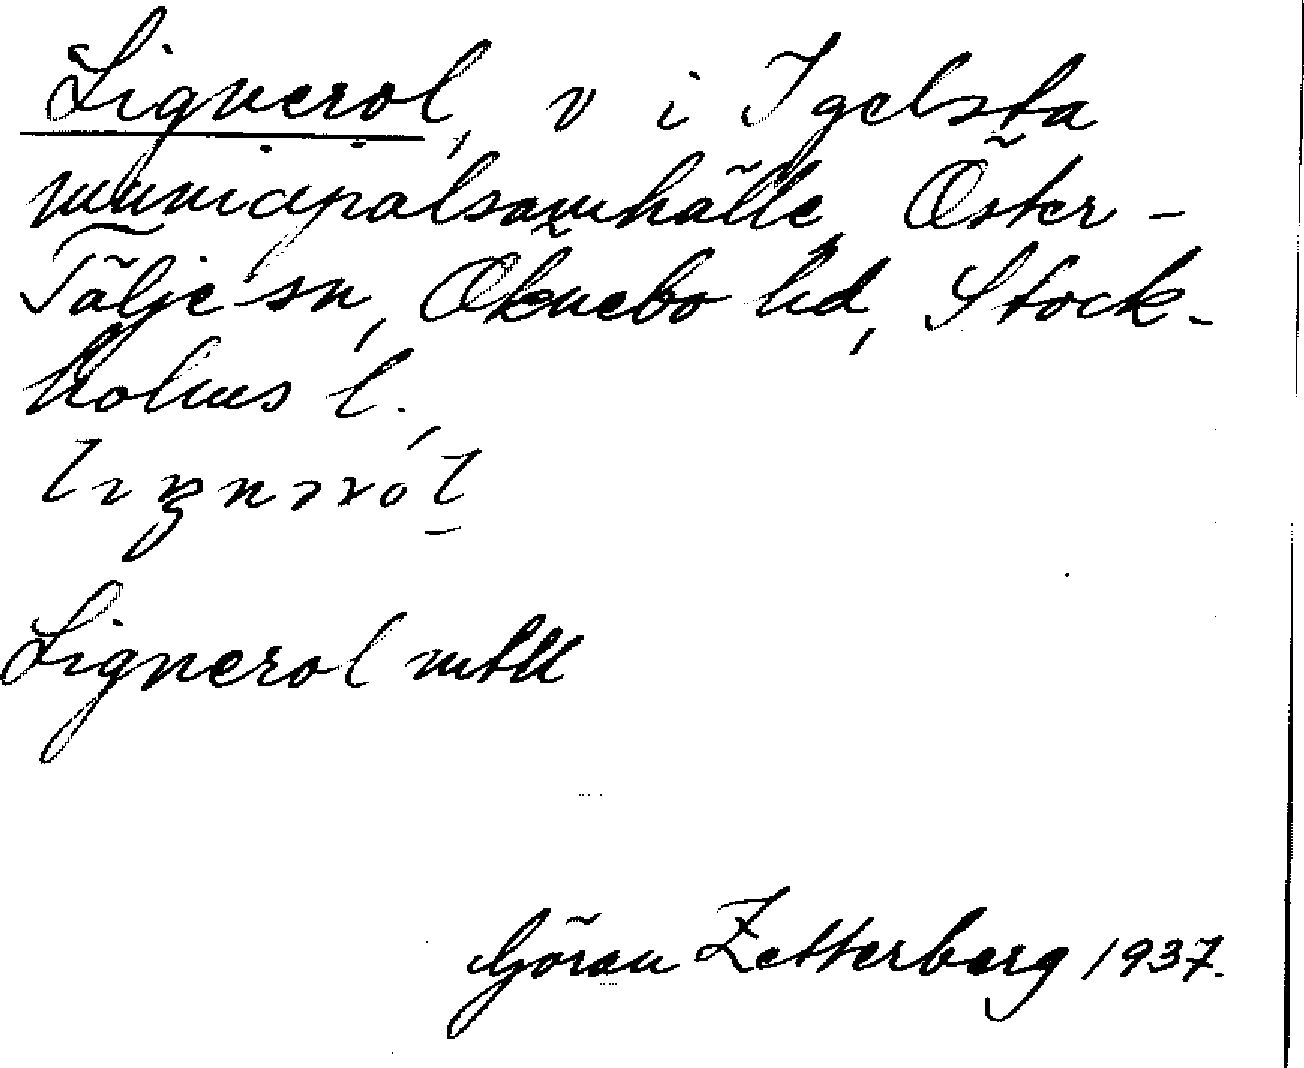 Lignerol, v i Igelsta
municipalsamhälle, Öster-
Tälje sn, Öknebo hd, Stock-
holms l.
Lignerol mtlk
Göran Zetterberg 1937.